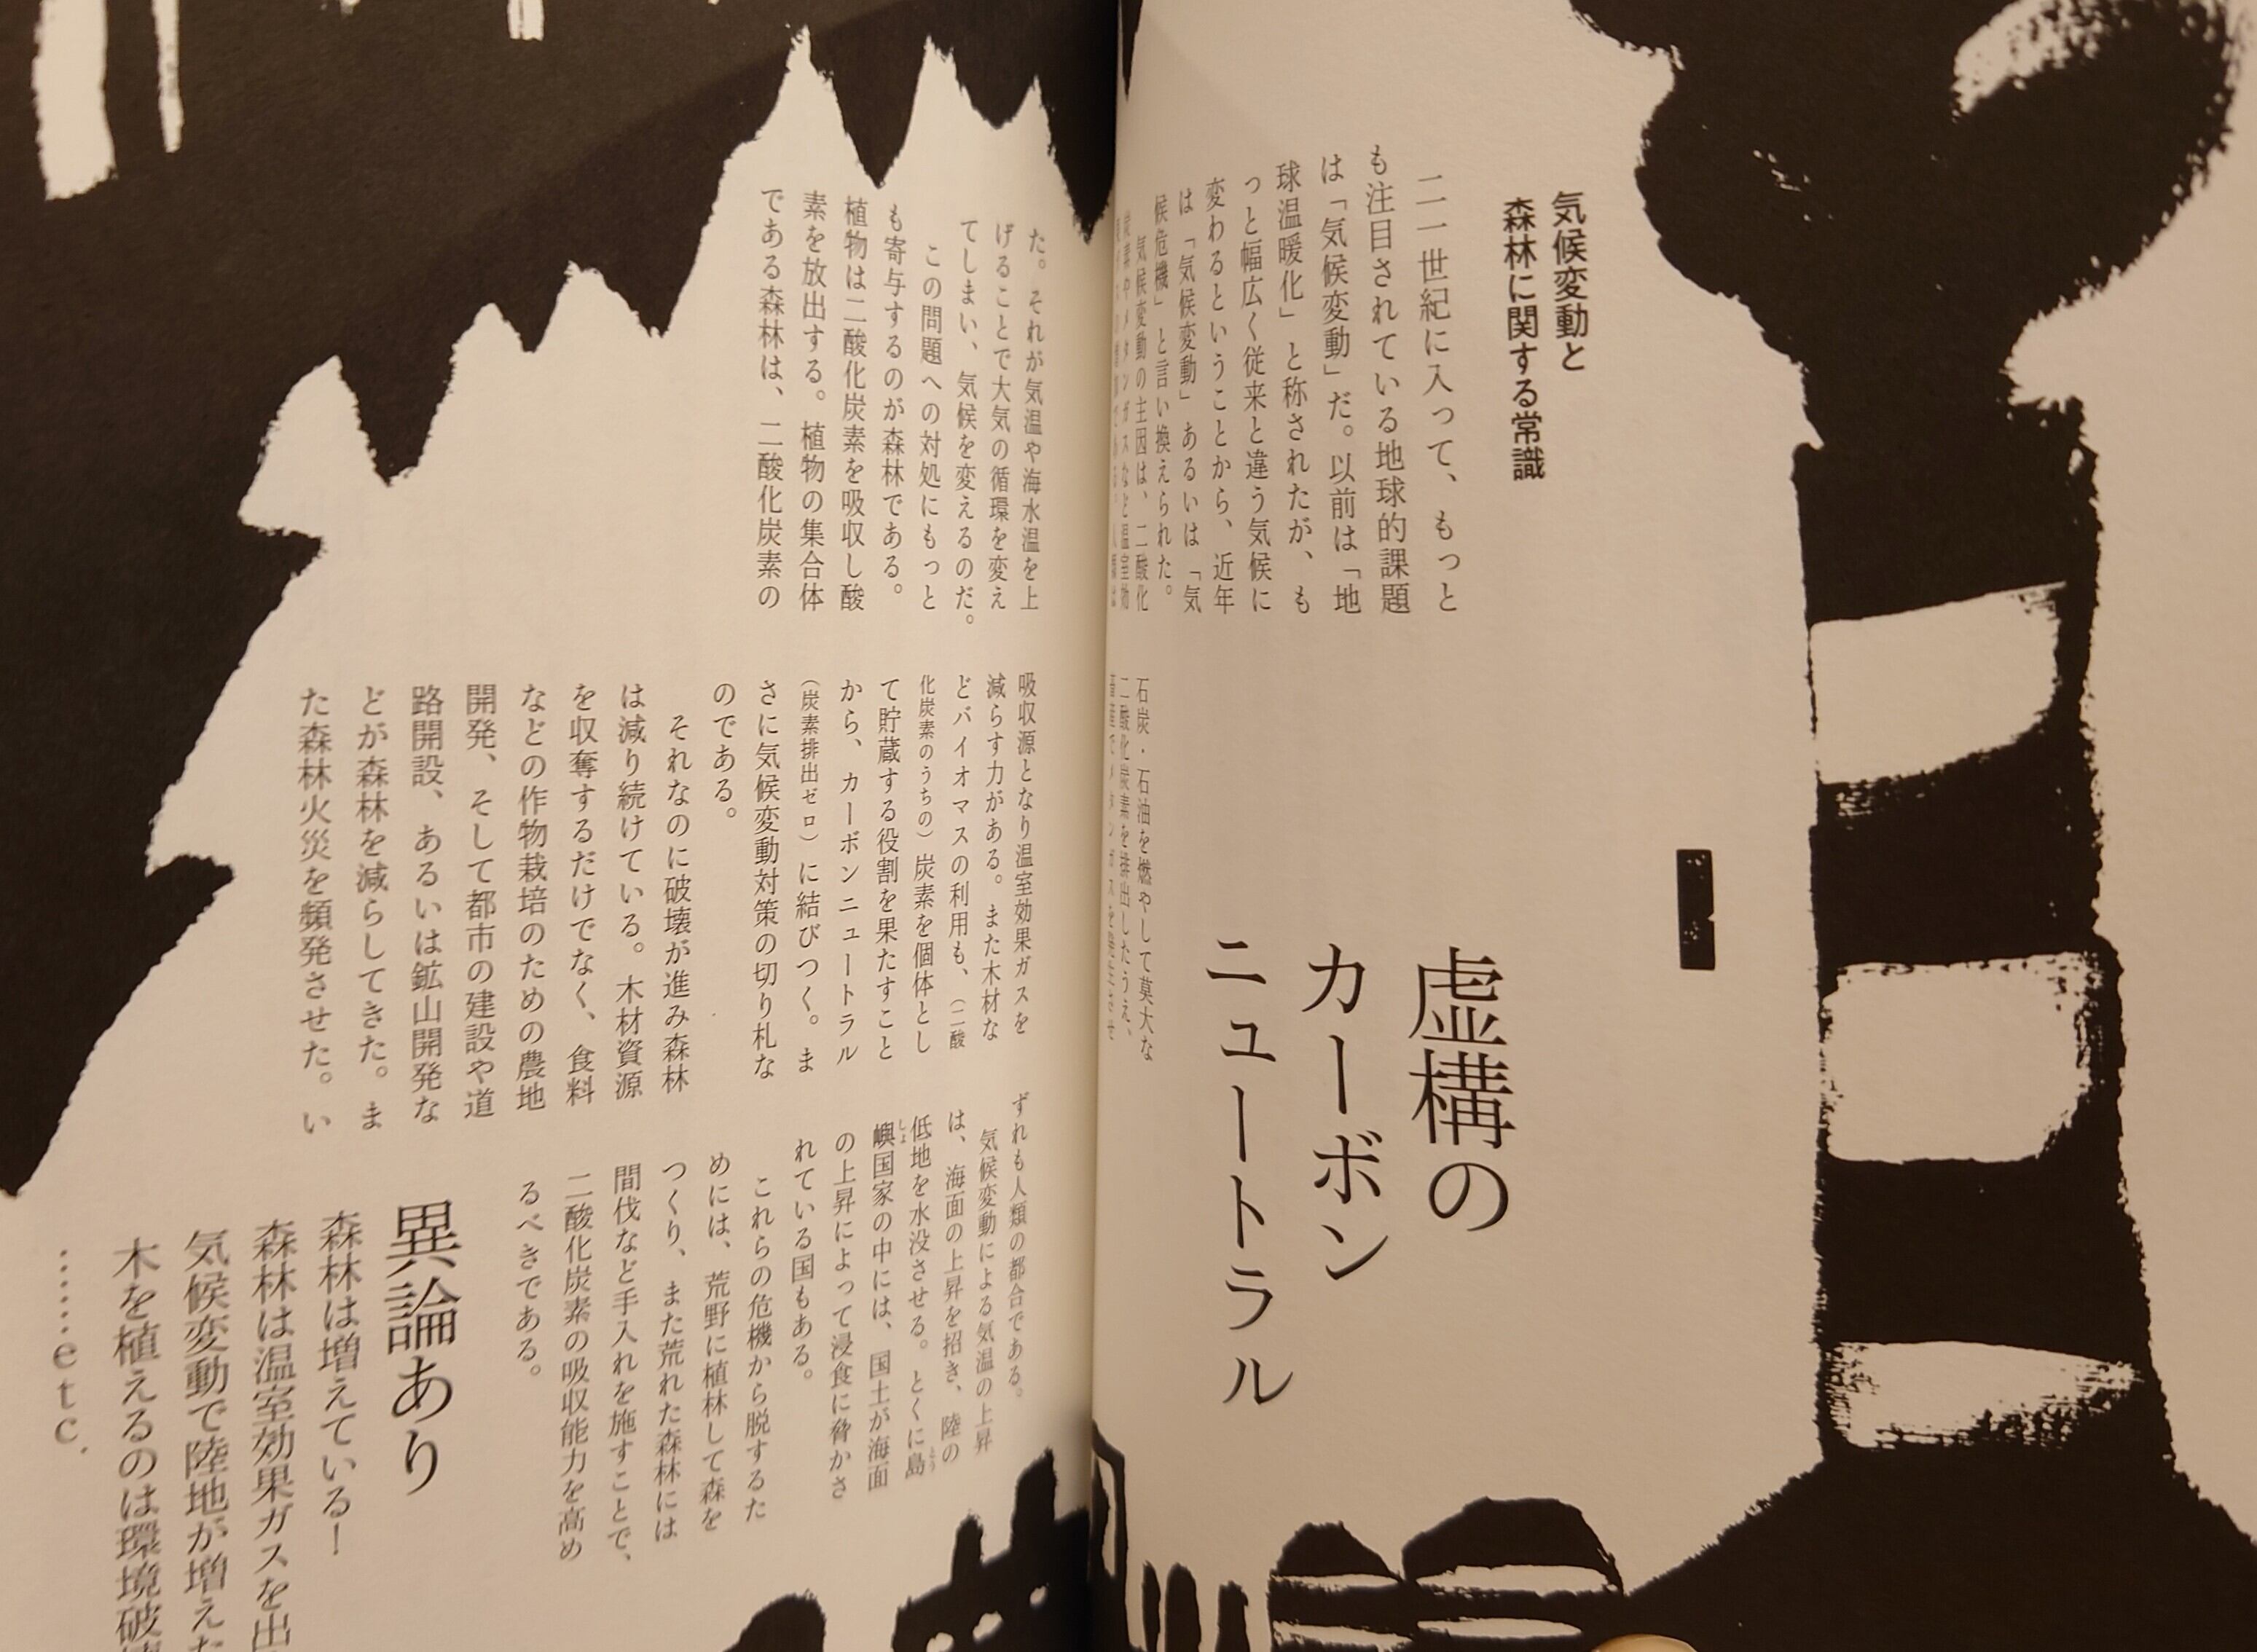 虚構の
カーボン
ニュートラル
気候変動と
森林に関する常識
二一世紀に入って、もっと
も注目されている地球的課題
は「気候変動」だ。以前は「地
球温暖化」と称されたが、も
っと幅広く従来と違う気候に
変わるということから、近年
は「気候変動」あるいは「気
候危機」と言い換えられた。
気候変動の主因は、二酸化
炭素やメタンガスなど温室効
石炭・石油を燃やして莫大な
二酸化炭素を排出したうえ、
た。それが気温や海水温を上
げることで大気の循環を変え
てしまい、気候を変えるのだ。
この問題への対処にもっと
も寄与するのが森林である。
植物は二酸化炭素を吸収し酸
素を放出する。植物の集合体
である森林は、二酸化炭素の
吸収源となり温室効果ガスを
減らす力がある。また木材な
どバイオマスの利用も、（二酸
化炭素のうちの）炭素を個体とし
て貯蔵する役割を果たすこと
から、カーボンニュートラル
（炭素排出ゼロ）に結びつく。ま
さに気候変動対策の切り札な
のである。
それなのに破壊が進み森林
は減り続けている。木材資源
を収奪するだけでなく、食料
などの作物栽培のための農地
開発、そして都市の建設や道
路開設、あるいは鉱山開発な
どが森林を減らしてきた。ま
た森林火災を頻発させた。い
ずれも人類の都合である。
気候変動による気温の上昇
は、海面の上昇を招き、陸の
低地を水没させる。とくに島
嶼国家の中には、国土が海面
の上昇によって浸食に脅かさ
れている国もある。
これらの危機から脱するた
めには、荒野に植林して森を
つくり、また荒れた森林には
間伐など手入れを施すことで、
二酸化炭素の吸収能力を高め
るべきである。
異論あり
森林は増えている！
森林は温室効果ガスを出
気候変動で陸地が増えた
木を植えるのは環境破壊
……etc.